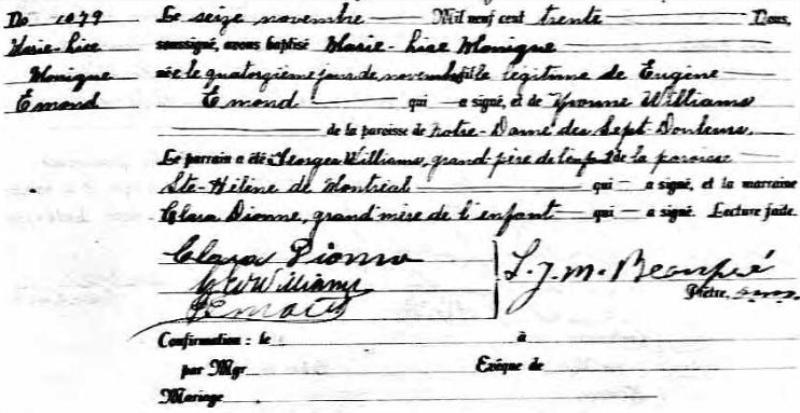 No 1079
Marie-Lise
Monique
Émond
Le seize novembre Mil neuf cent trente Nous,
soussigné, avons baptisé Marie-Lise Monique
née le quatorzième jour de novembre fille légitime de Eugène
Émond qui a signé, et de Yvonne Williams
de la paroisse de Notre-Dame des Sept-Douleurs.
Le parrain a été Georges Williams, grand-père de l'enfant de la paroisse
Ste-Hélène de Montréal qui a signé, et la marraine
Clara Dionne, grand'mère de l'enfant qui a signé. Lecture faite.
Clara Dionne
Williams
L. J. M. Beaupré
Prêtre,
Confirmation : le à
par Mgr Evêque de
Mariage